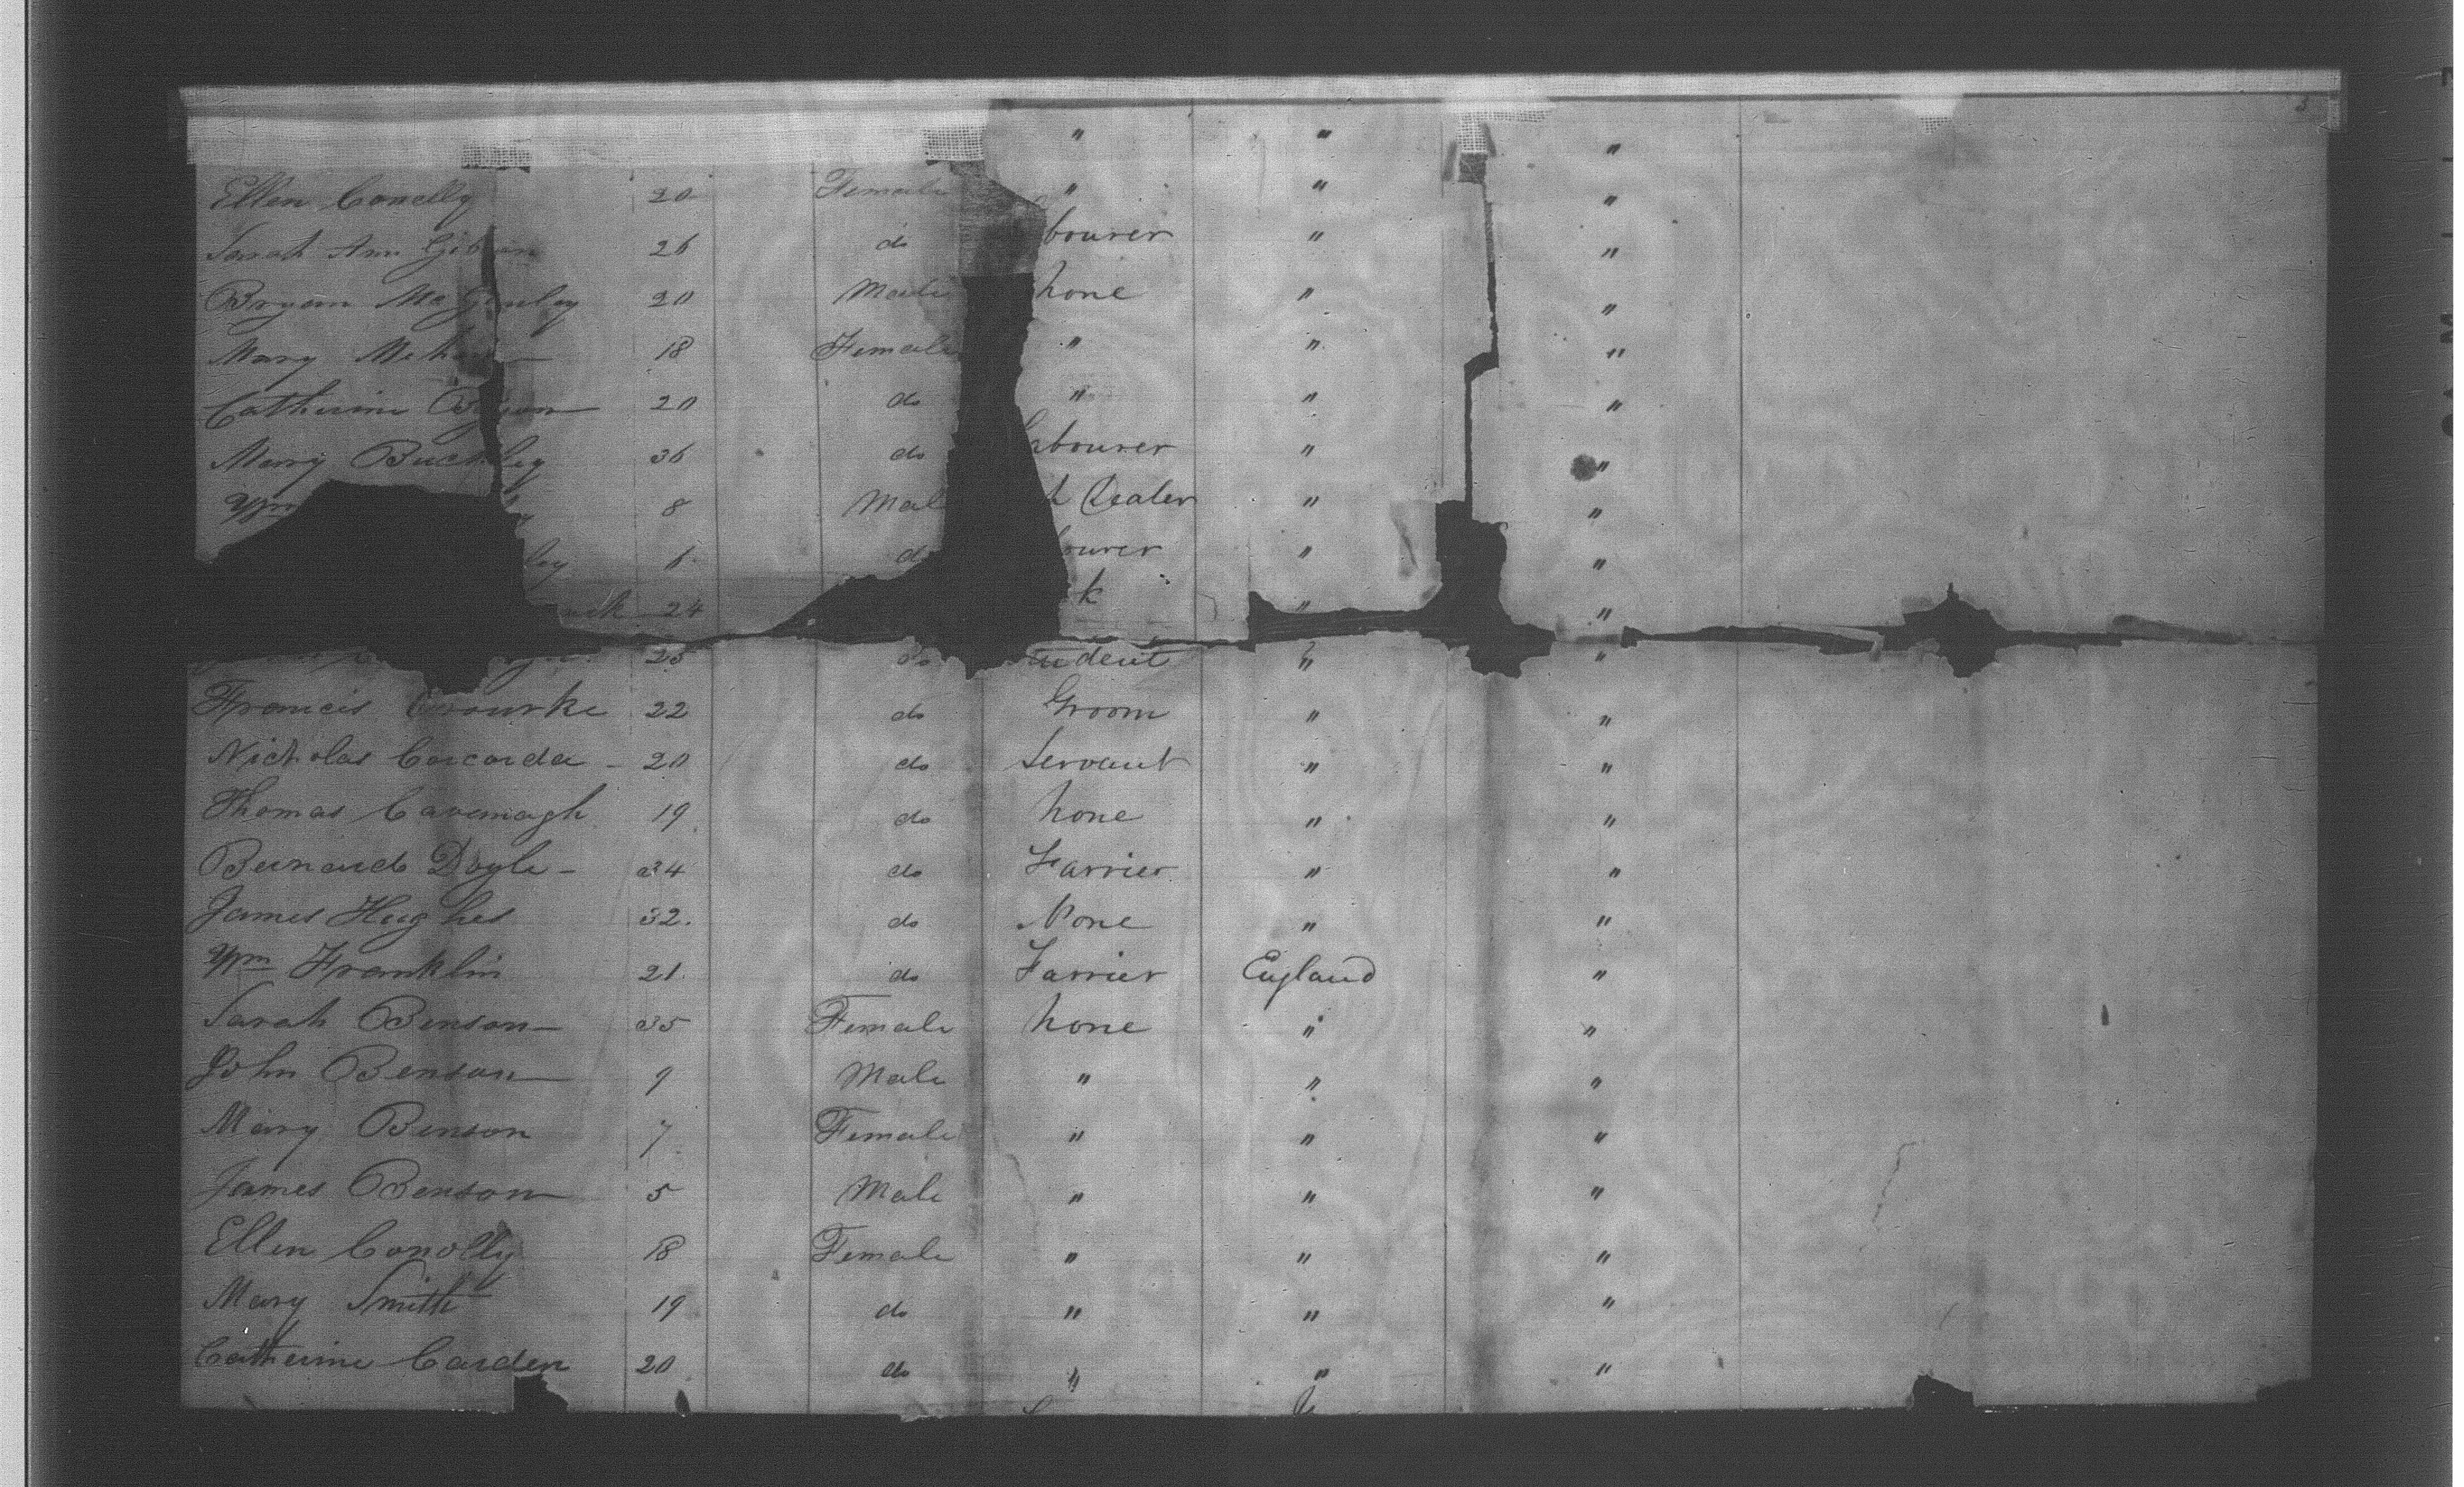 " " "
Ellen Conelly 20 Female " " "
Sarah Ann 26 do bourer " "
Bryan 20 Male none " "
Mary 18 Female " " "
Catherine 20 do " " "
Mary Buckley 36 do bourer " "
Wm 8 Mal Dealer " "
ley 6 do ourer " "
24 k " "
25 do udent " "
Francis 22 do Groom " "
Nicholas Corcorda - 20 do Servant " "
Thomas Cavenagh 19 do none " "
Bernard Doyle - 34 do Farrier " "
James Hughes 32. do None " "
Wm Franklin 21. do Farrier England "
Sarah Benson 35 Female none " "
John Benson 9 Male " " "
Mary Benson 7 Female " " "
James Benson 5 Male " " "
Ellen Conolly 18 Female " " "
Mary Smith 19 do " " "
Catherine Carden 20 do " " "